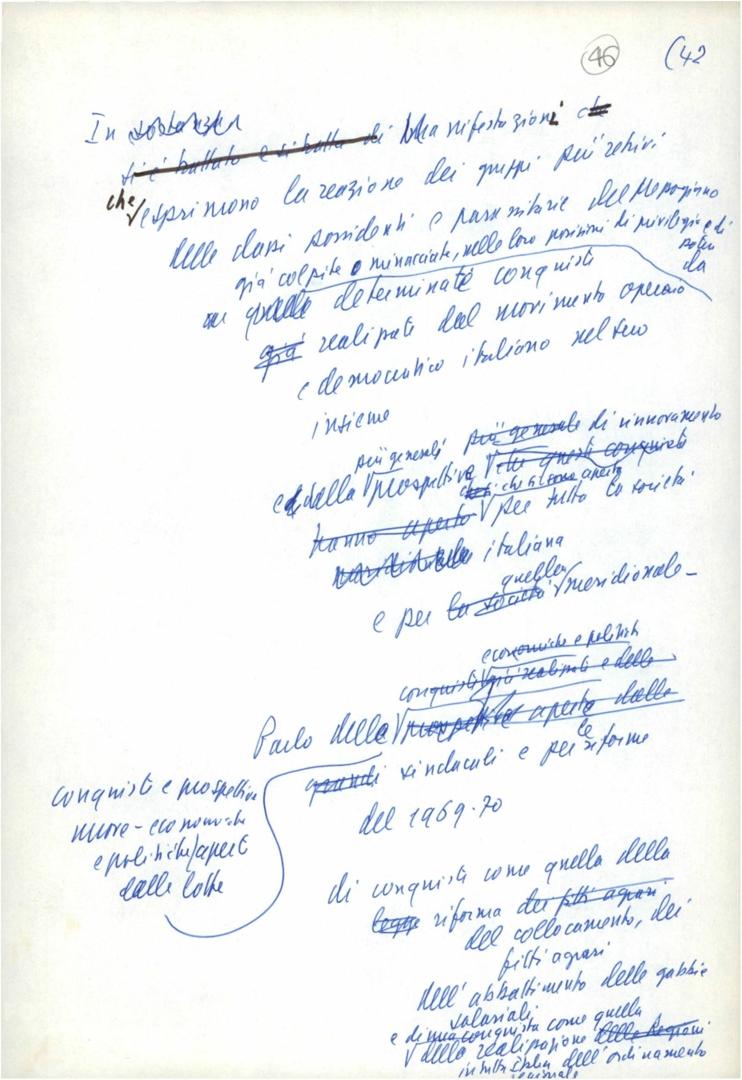 46 (42
In sostanza
si è trattato e si tratta di manifestazioni che
che esprimono la reazione dei gruppi più retrivi
delle classi possidenti e parassitarie del Mezzogiorno
già colpite o minacciate, nelle loro posizioni di privilegio e di
potere da
quelle determinate conquiste
già realizzate dal movimento operaio
e democratico italiano nel suo
insieme
più generali più generale di rinnovamento
e dalla prospettiva che queste conquiste
che si sono aperte
hanno aperto per tutta la società
meridionale italiana
quella
e per la società meridionale -
economiche e politiche
conquiste già realizzate e delle
Parlo delle prospettive aperte dalle
le
grandi sindacali e per riforme
del 1969-70
conquiste e prospettive
nuove - economiche
e politiche aperte
dalle lotte
di conquiste come quella della
legge riforma dei fitti agrari
del collocamento, dei
fitti agrari
dell'abbattimento delle gabbie
salariali
e di una conquista come quella
della realizzazione delle Regioni
in tutta Italia dell'ordinamento
regionale